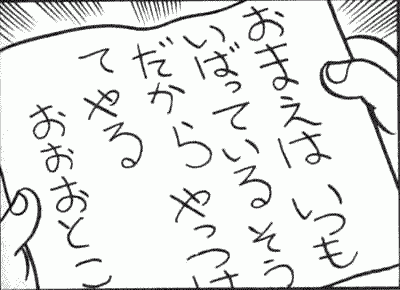 おまえは いつも
いばっているそう
だから やっつけ
てやる
おおおとこ